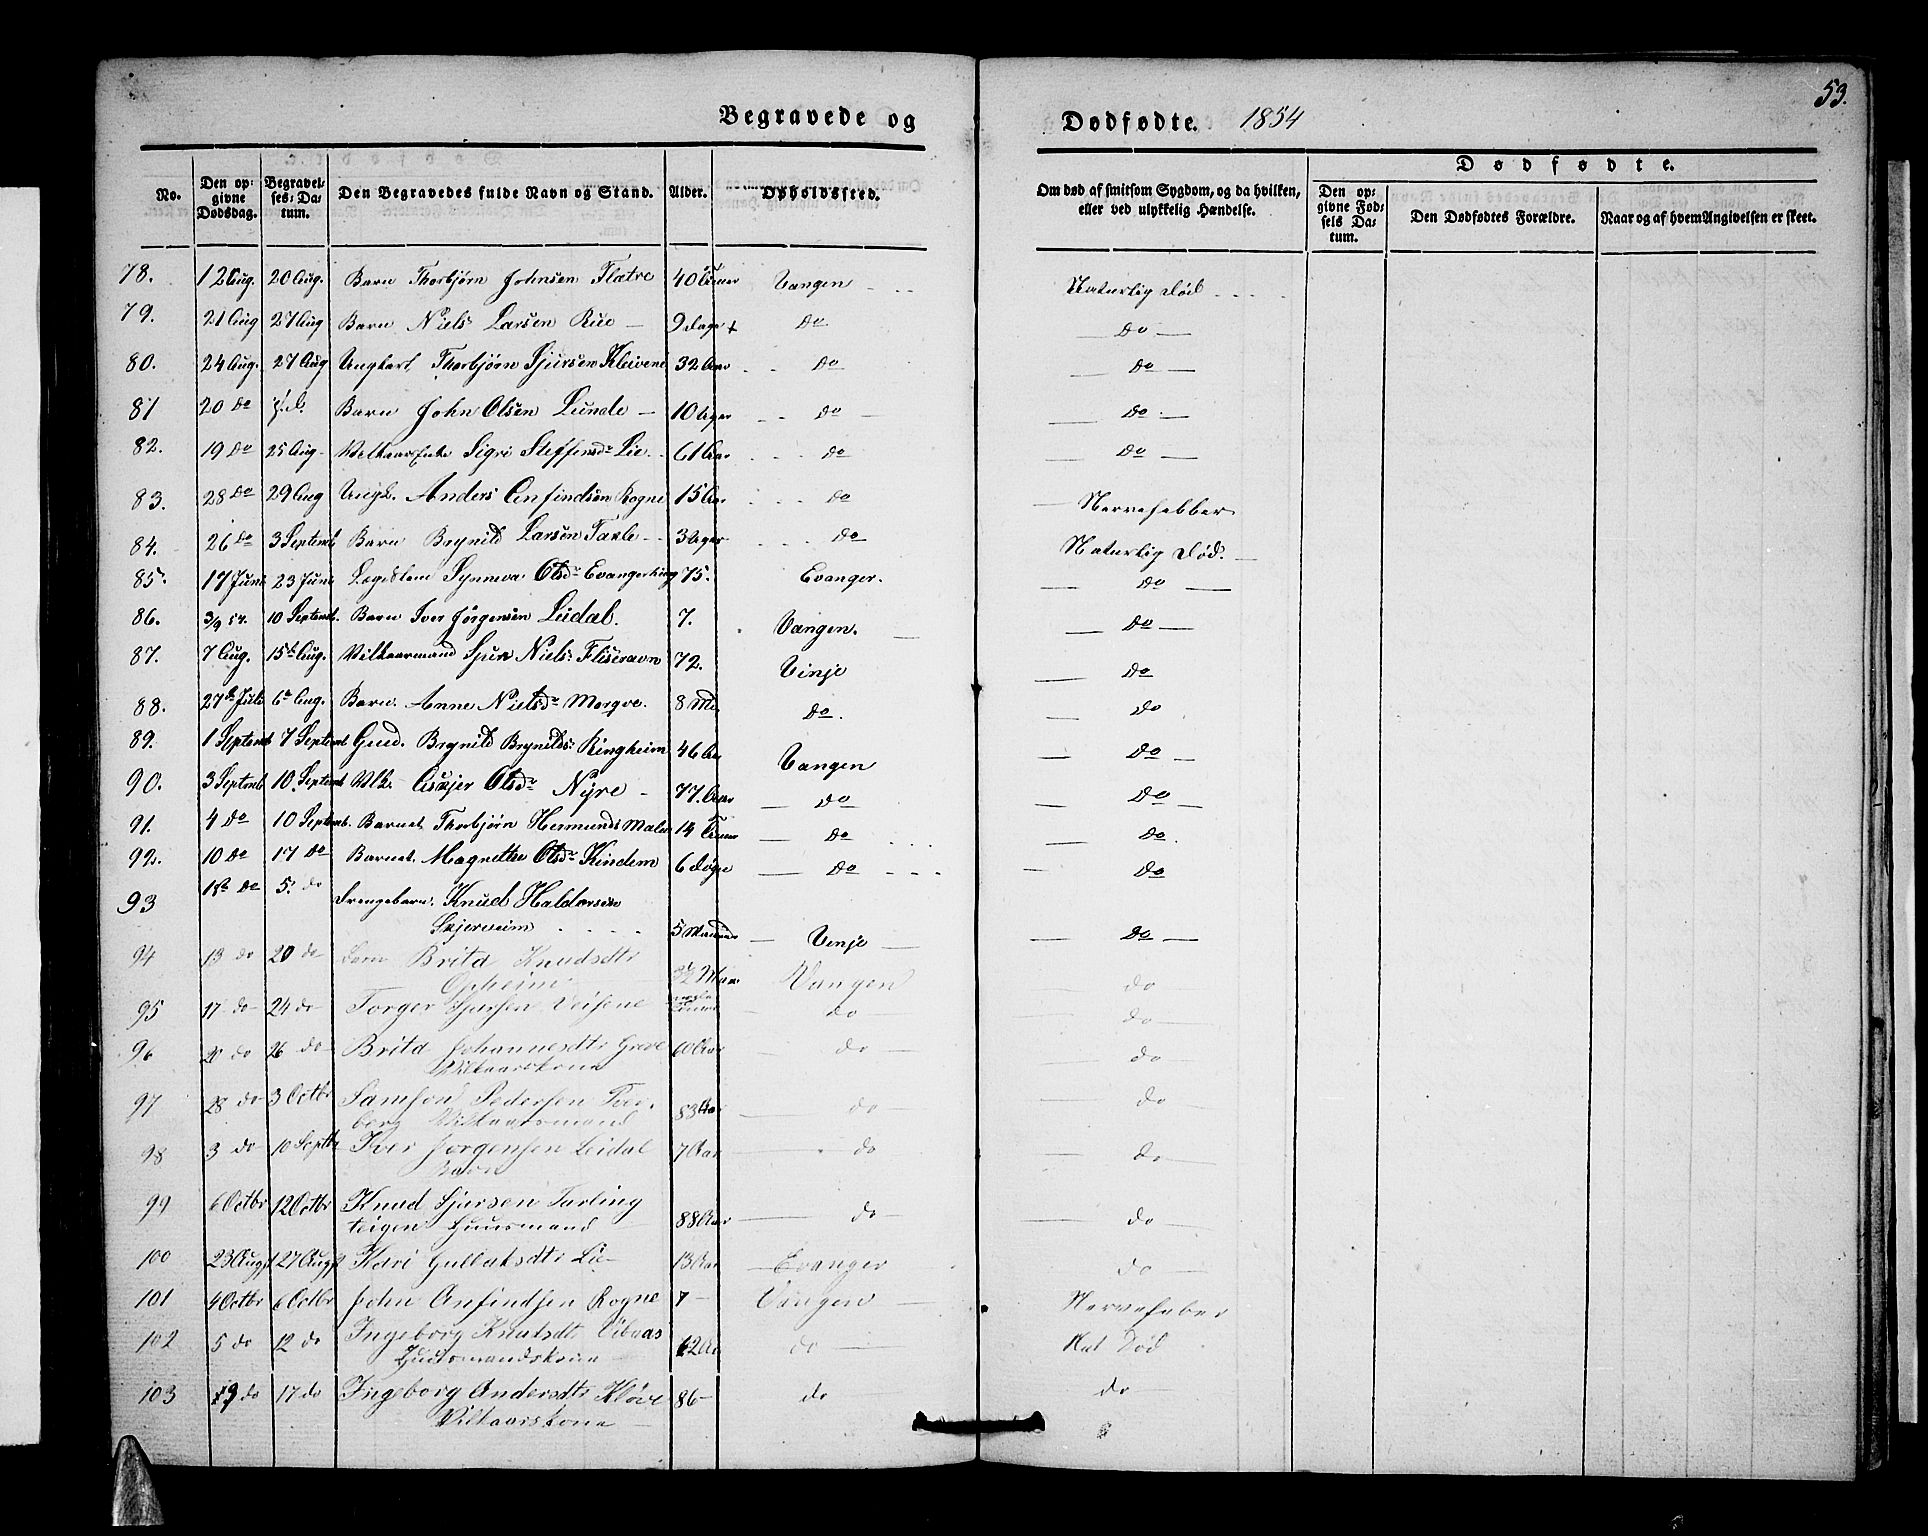 53.
Begravede og Dødfødte. 1854
Dødfødte.
No. Den opgivne Dødsdag. Begravelses-Datum. Den Begravedes fulde Navn og Stand. Alder. Opholdssted. Om død af smitsom Sygdom, og da hvilken, eller ved ulykkelig Hændelse. Den opgivne Fødsels Datum. Den Dødfødtes Forældre. Naar og af hvem Angivelsen er skeet.
78. 12 Aug. 20 Aug. Barn Thorbjørn Johnsen Flatre 40 Vangen Naturlig Død
79. 21 Aug 27 Aug Barn Niels Larsen Rue 9 Dage Do Do
80. 24 Aug. 27 Aug Ungkarl Thorbjørn Sjursen Kleivene 32 Aar Do Do
81 20 Do Barn John Olsen Lunde 10 Do Do
82. 19 Do 25 Aug Sigri Steffensdr Lie 61 Aar Do Do
83. 28 Do 29 Aug Ungk. Anders Anfindsen Rogne 15 Aar Do Nervefebber
84. 26 Do 3 Septemb Barn Brynild Larsen Do Naturlig Død.
85. 17 Juni 23 Juni Synneva Olsdr 75. Evanger. Do
86. 3/9 54. 10 Septemb. Barn Iver Jørgensen Lidal. 7. Vangen. Do
87. 7 Aug. 15 Aug. Vilkaarmand Sjur Niels. 72. Vinje Do
88. 27 Juli 6 Aug. Barn. Anne Nielsdr Mørgve. 8 Md. Do. Do
89. 1 Septemb 7 Septemb Gmd. Brynild Brynilds. Ringheim 46 Aar Vangen Do
90. 3 Septemb 10. Septemb Vlk. Olsdr Nyre 77. Aar Do Do
91. 4 Do 10 Septemb. Barnet Thorbjørn Hermunds 14 Do Do.
92. 10 Do 17 Do Barnet. Magnethe Olsdr Kindem 6 Døgn Do Do
93 18 Do 5. do Drengebarn. Knud Haldorsen
Skjerveim 5 Vinje Do
94 13 do 20 do Barn Brita Knudsdtr
Opheim Vangen do
95 17 do 24 do Torger Sjursen do do
96 26 do Brita Johannesdtr Greve 60 Aar do do
Vilkaarskone
97 28 do 3 Octbr Samson Pedersen Tver-
berg Vilkaarsmand 83 Aar do do
98 3 do 10 Septbr Iver Jørgensen Leidal 7 Aar do do
Barn
99 6 Octbr 12 Octbr Knud Sjursen Tarling
teigen Huusmand 88 Aar do do
100 23 Augst 27 Augst Kari Gullaksdtr Lie 13 Aar Evanger do
101 4 Octbr 6 Octbr John Anfindsen Rogne 7 Vangen Nervefeber
102 5 do 12 do Ingeborg Knutsdtr 62 Aar do Nat Død
Huusmandskone
103 do 17 do Ingeborg Andersdtr Kløve 86 do do
Vilkaarskone